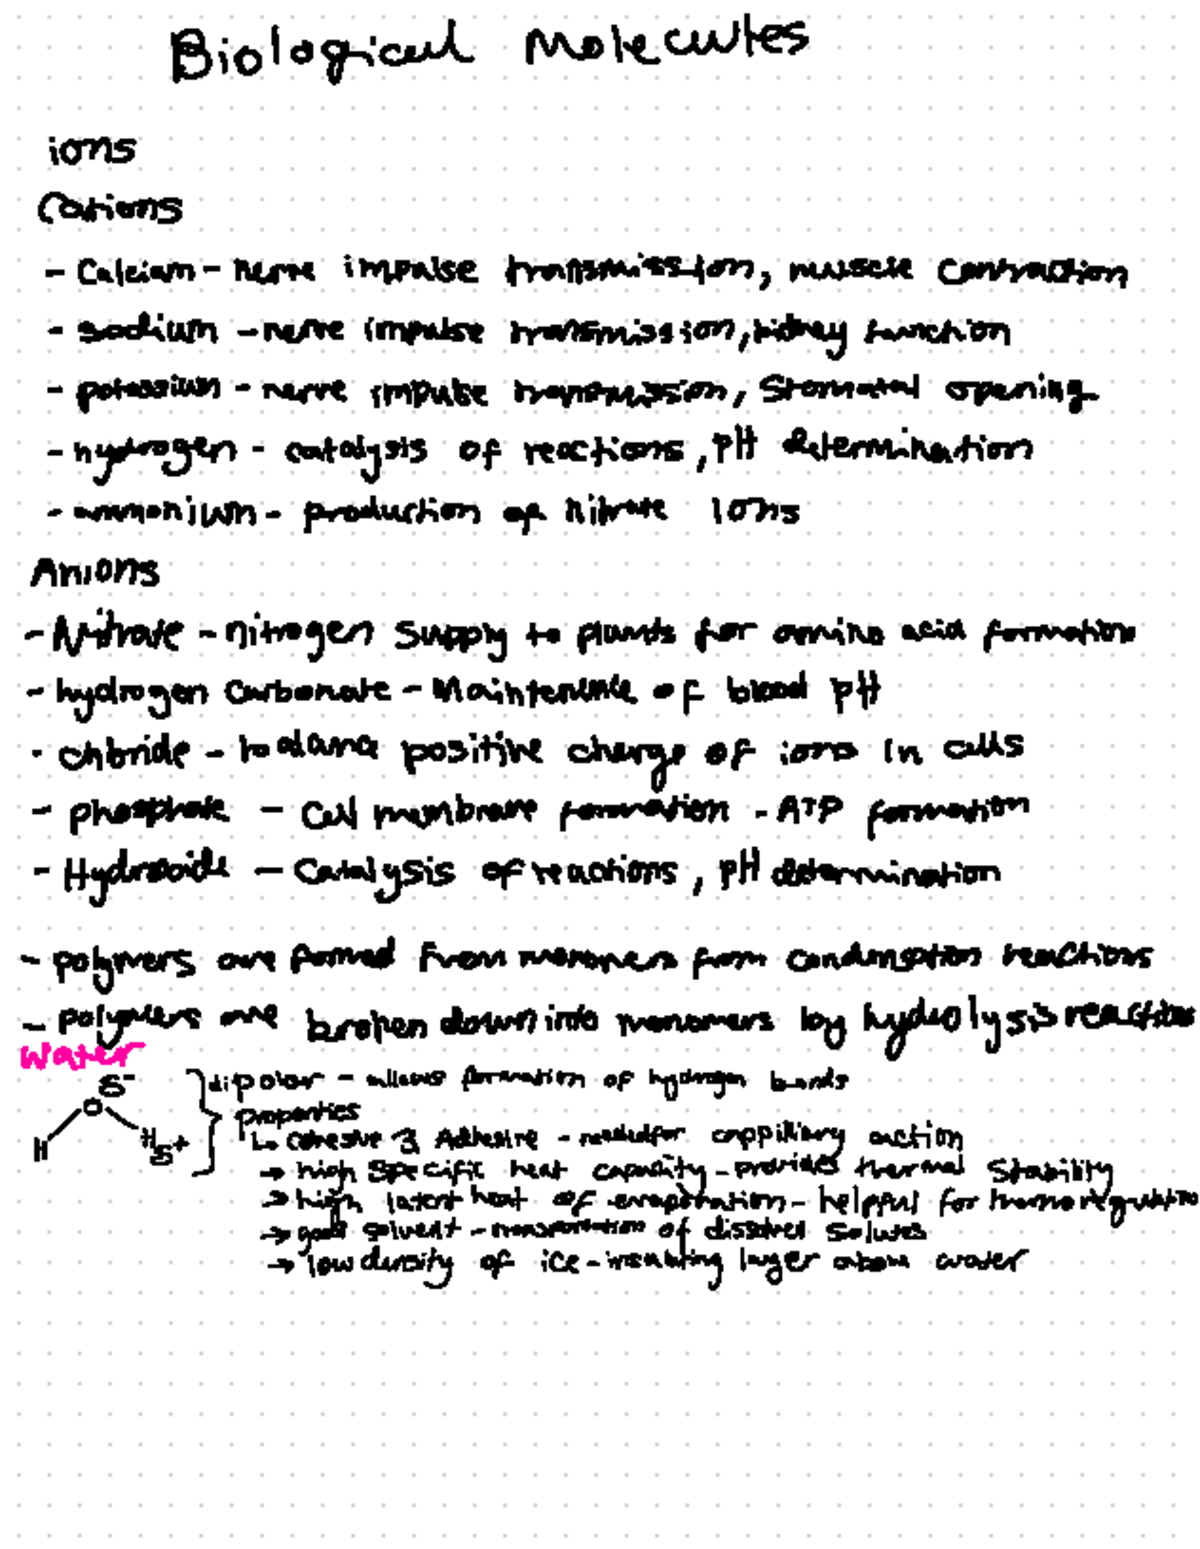 Biological Molecules
ions
Cations
- Calcium - nerve impulse transmission, muscle contraction
- sodium - nerve impulse transmission, kidney function
- potassium - nerve impulse transmission, Stomatal opening
- hydrogen - catalysis of reactions, pH determination
- ammonium - production of nitrate ions
Anions
- Nitrate - nitrogen supply to plants for amino acid formation
- hydrogen Carbonate - Maintenence of blood pH
- chloride - balance positive charge of ions in cells
- phosphate - Cell membrane formation - ATP formation
- Hydroxide - Catalysis of reactions, pH determination
- polymers are formed from monomers from condensation reactions
- polymers are broken down into monomers by hydrolysis reactions
Water
δ-
O
H
H
δ+
dipolar - allows formation of hydrogen bonds
properties
↳ Cohesive & Adhesive - needed for cappillary action
→ high specific heat capacity - provides thermal stability
→ high latent heat of evaporation - helpful for
→ good solvent - transportation of dissolved solutes
→ low density of ice - insulating layer above water